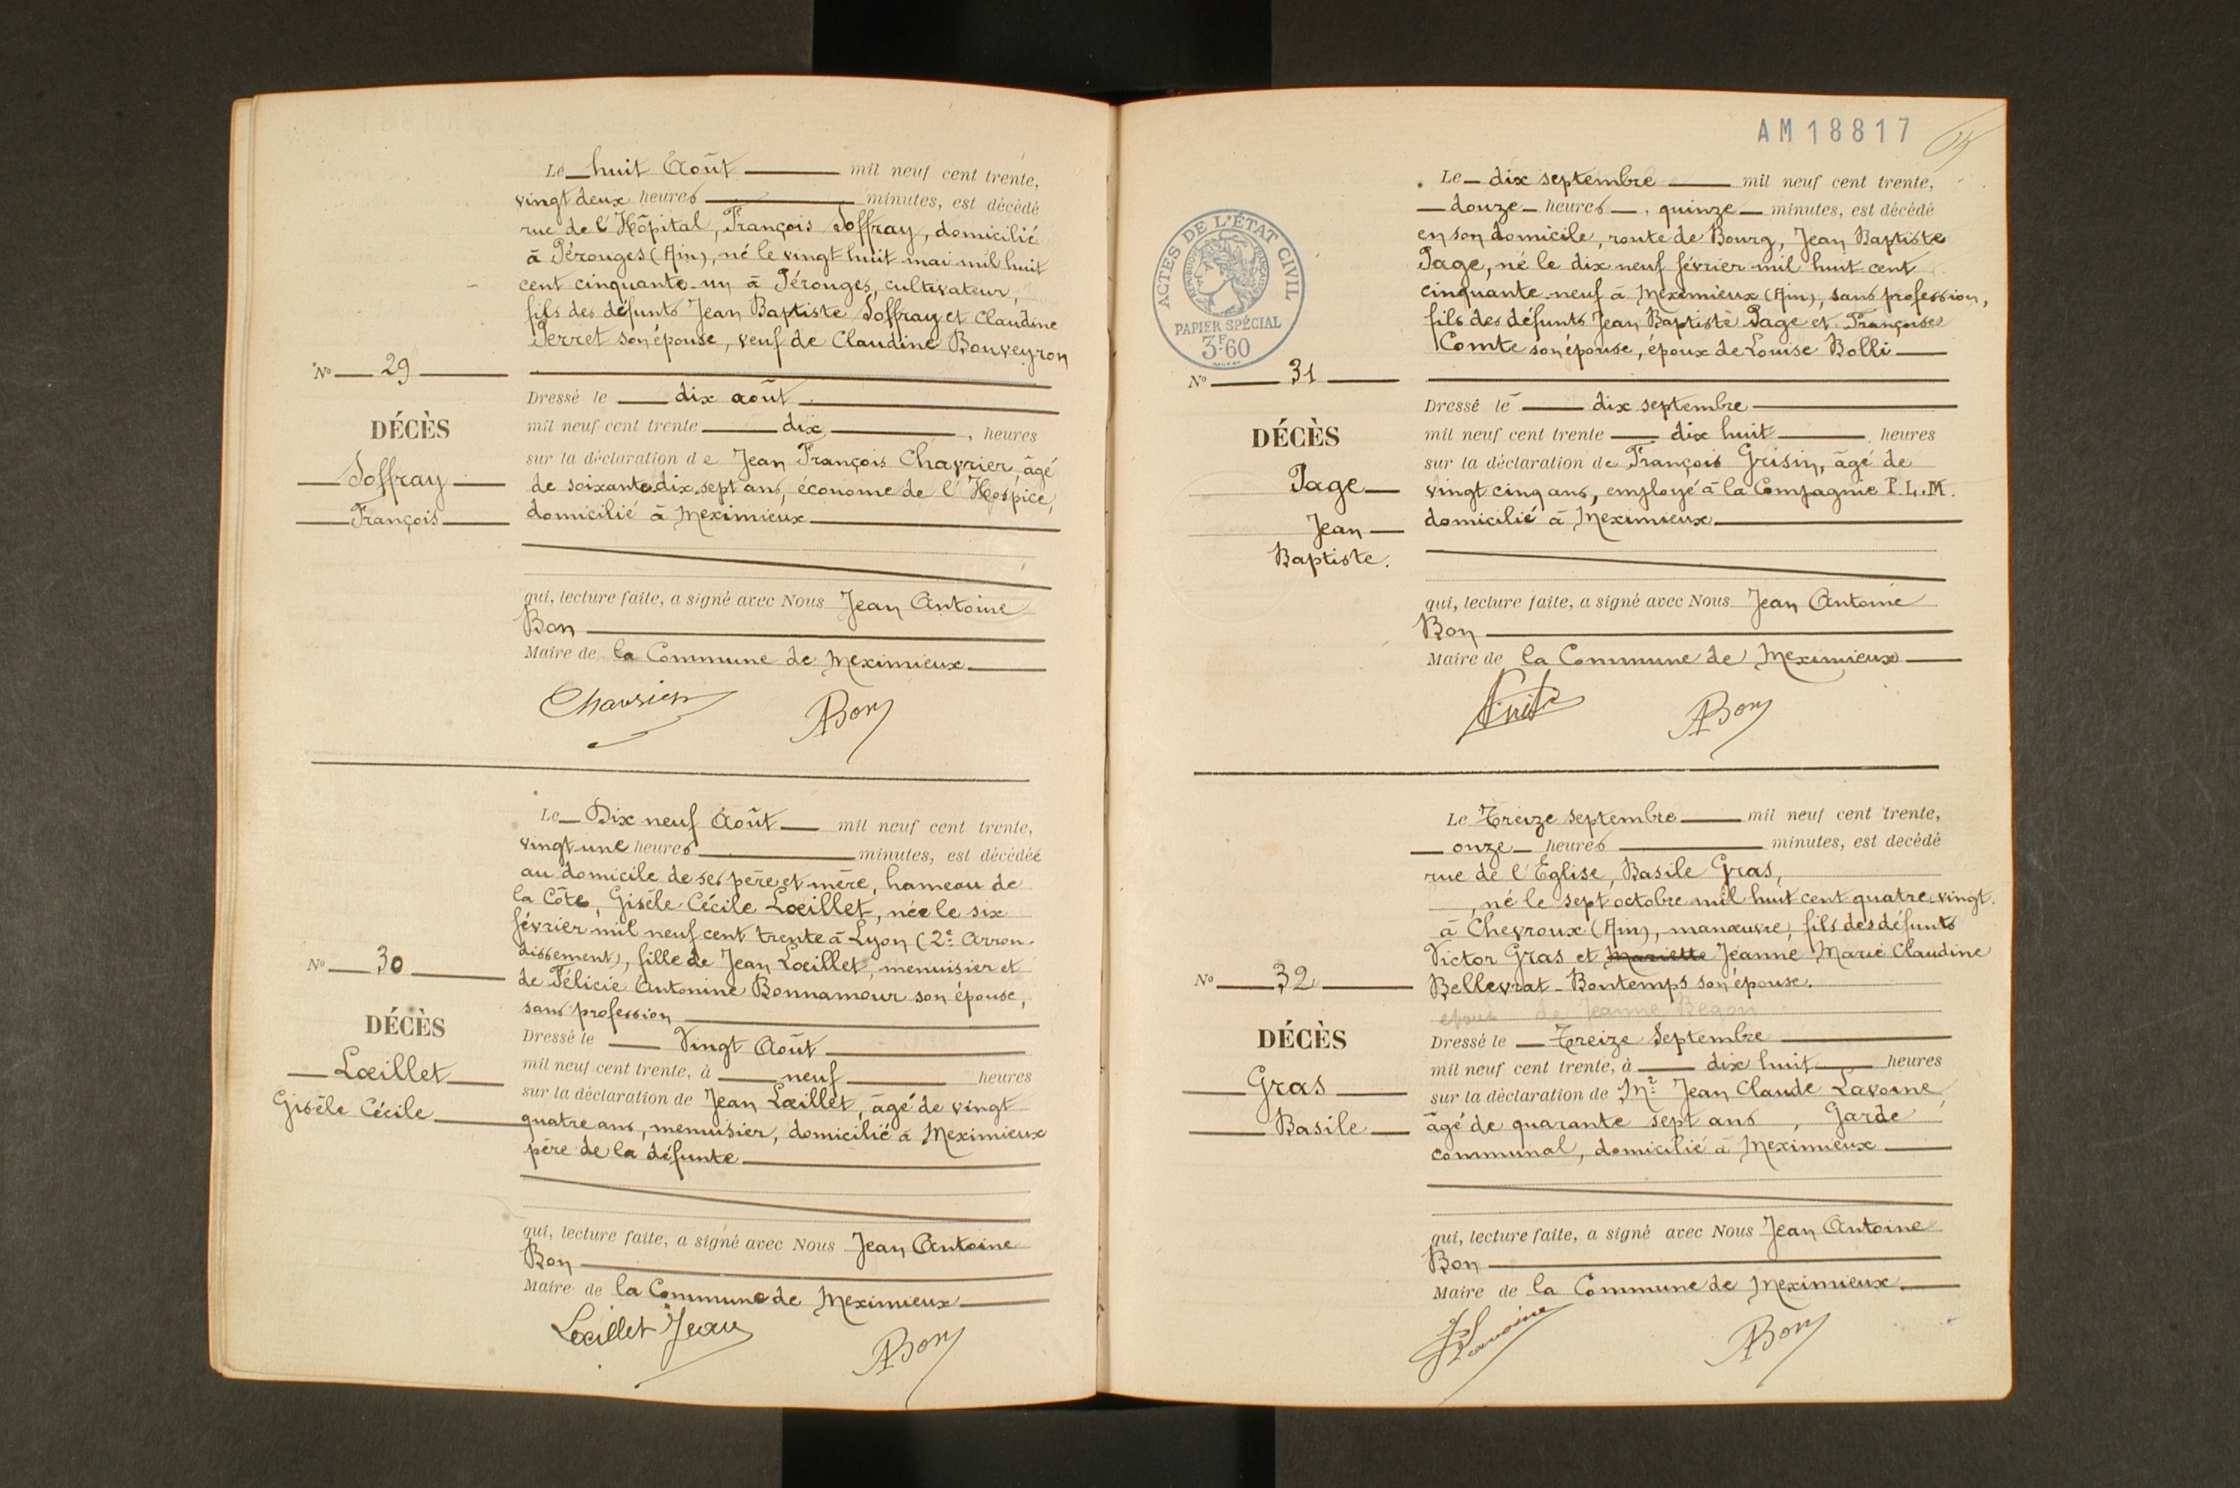 Le huit Août mil neuf cent trente,
vingt deux heures minutes, est décédé
rue de l'Hôpital, François Soffray, domicilié
à Pérouges (Ain), né le vingt huit mai mil huit
cent cinquante-un à Pérouges, cultivateur,
fils des défunts Jean Baptiste Soffray et Claudine
Perret son épouse, veuf de Claudine Bouveyron
N° 29
DÉCÈS
Soffray
François
Dressé le dix août
mil neuf cent trente dix, heures
sur la déclaration de Jean François Chavrier, âgé
de soixante dix sept ans, économe de l'Hospice,
domicilié à Meximieux
qui, lecture faite, a signé avec Nous Jean Antoine
Bon
Maire de la Commune de Meximieux
Chavrier ABon
Le Dix neuf Août mil neuf cent trente,
vingt une heures minutes, est décédée
au domicile de ses père et mère, hameau de
la Côte, Gisèle Cécile Lœillet, née le six
février mil neuf cent trente à Lyon (2e Arron-
dissement), fille de Jean Lœillet, menuisier et
de Félicie Antonine Bonnamour son épouse,
sans profession
N° 30
DÉCÈS
Lœillet
Gisèle Cécile
Dressé le Vingt Août
mil neuf cent trente, à neuf heures
sur la déclaration de Jean Lœillet, âgé de vingt
quatre ans, menuisier, domicilié à Meximieux
père de la défunte
qui, lecture faite, a signé avec Nous Jean Antoine
Bon
Maire de la Commune de Meximieux
Lœillet Jean ABon
AM 18817
ACTES DE L'ÉTAT CIVIL
RÉPUBLIQUE FRANÇAISE
PAPIER SPÉCIAL
3F60
Le dix septembre mil neuf cent trente,
douze heures, quinze minutes, est décédé
en son domicile, route de Bourg, Jean Baptiste
Page, né le dix neuf février mil huit cent
cinquante-neuf à Meximieux (Ain), sans profession,
fils des défunts Jean Baptiste Page et Françoise
Comte son épouse, époux de Louise Bolli
N° 31
DÉCÈS
Page
Jean
Baptiste.
Dressé le dix septembre
mil neuf cent trente dix huit heures
sur la déclaration de François Grisin, âgé de
vingt cinq ans, employé à la Compagnie P.L.M.
domicilié à Meximieux
qui, lecture faite, a signé avec Nous Jean Antoine
Bon
Maire de la Commune de Meximieux
ABon
Le Treize septembre mil neuf cent trente,
onze heures minutes, est décédé
rue de l'Eglise, Basile Gras,
, né le sept octobre mil huit cent quatre vingt.
à Chevroux (Ain), manœuvre, fils des défunts
Victor Gras et Mariette Jeanne Marie Claudine
Bellevrat-Bontemps son épouse.
époux de Jeanne Begon
N° 32
DÉCÈS
Gras
Basile
Dressé le Treize Septembre
mil neuf cent trente, à dix huit heures
sur la déclaration de Mr Jean Claude Lavoine,
âgé de quarante sept ans, Garde
communal, domicilié à Meximieux
qui, lecture faite, a signé avec Nous Jean Antoine
Bon
Maire de la Commune de Meximieux.
Lavoine ABon